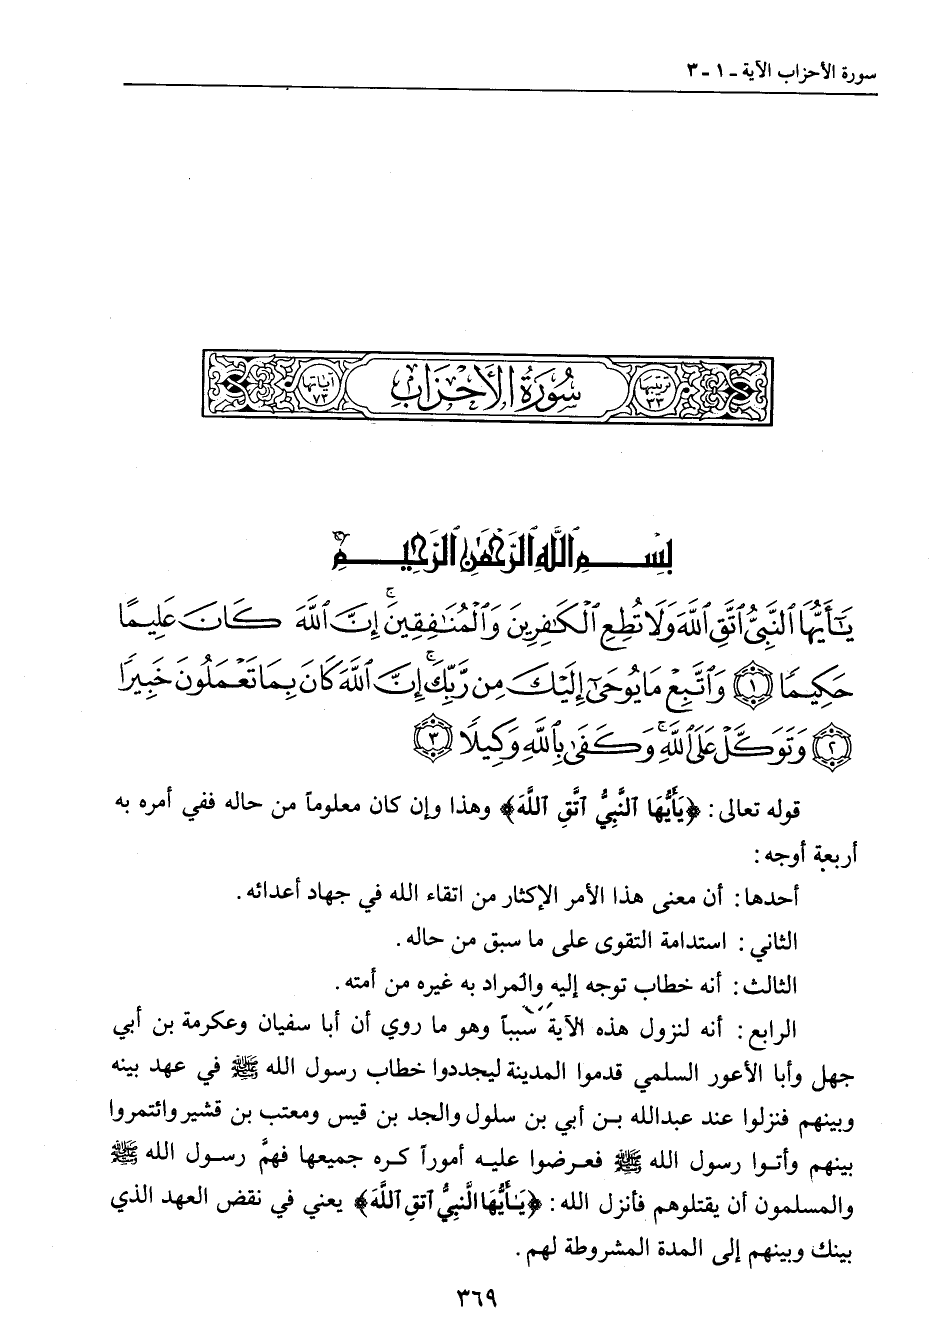 سورة الأحزاب الآية - ١ - ٣
ترتيبها ٣٣
سُورَةُ الأَحْزَابِ
آياتها ٧٣
بِسْمِ اللَّهِ الرَّحْمَٰنِ الرَّحِيمِ
يَٰٓأَيُّهَا ٱلنَّبِيُّ ٱتَّقِ ٱللَّهَ وَلَا تُطِعِ ٱلْكَٰفِرِينَ وَٱلْمُنَٰفِقِينَۚ إِنَّ ٱللَّهَ كَانَ عَلِيمًا
حَكِيمًا ١ وَٱتَّبِعْ مَا يُوحَىٰٓ إِلَيْكَ مِن رَّبِّكَۚ إِنَّ ٱللَّهَ كَانَ بِمَا تَعْمَلُونَ خَبِيرًا
٢ وَتَوَكَّلْ عَلَى ٱللَّهِۚ وَكَفَىٰ بِٱللَّهِ وَكِيلًا ٣
قوله تعالى: ﴿يَأَيُّهَا ٱلنَّبِيُّ ٱتَّقِ ٱللَّهَ﴾ وهذا وإن كان معلوماً من حاله ففي أمره به
أربعة أوجه:
أحدها: أن معنى هذا الأمر الإكثار من اتقاء الله في جهاد أعدائه.
الثاني: استدامة التقوى على ما سبق من حاله.
الثالث: أنه خطاب توجه إليه والمراد به غيره من أمته.
الرابع: أنه لنزول هذه الآية سبباً وهو ما روي أن أبا سفيان وعكرمة بن أبي
جهل وأبا الأعور السلمي قدموا المدينة ليجددوا خطاب رسول الله ﷺ في عهد بينه
وبينهم فنزلوا عند عبدالله بن أبي بن سلول والجد بن قيس ومعتب بن قشير وائتمروا
بينهم وأتوا رسول الله ﷺ فعرضوا عليه أموراً كره جميعها فهمَّ رسول الله ﷺ
والمسلمون أن يقتلوهم فأنزل الله: ﴿يَٰأَيُّهَا ٱلنَّبِيُّ ٱتَّقِ ٱللَّهَ﴾ يعني في نقض العهد الذي
بينك وبينهم إلى المدة المشروطة لهم.
٣٦٩